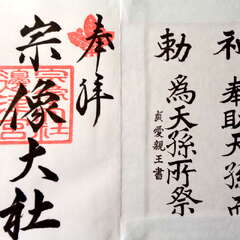 奉拝
宗像大社
奉助天孫而
爲天孫所祭
勅
貞愛親王書